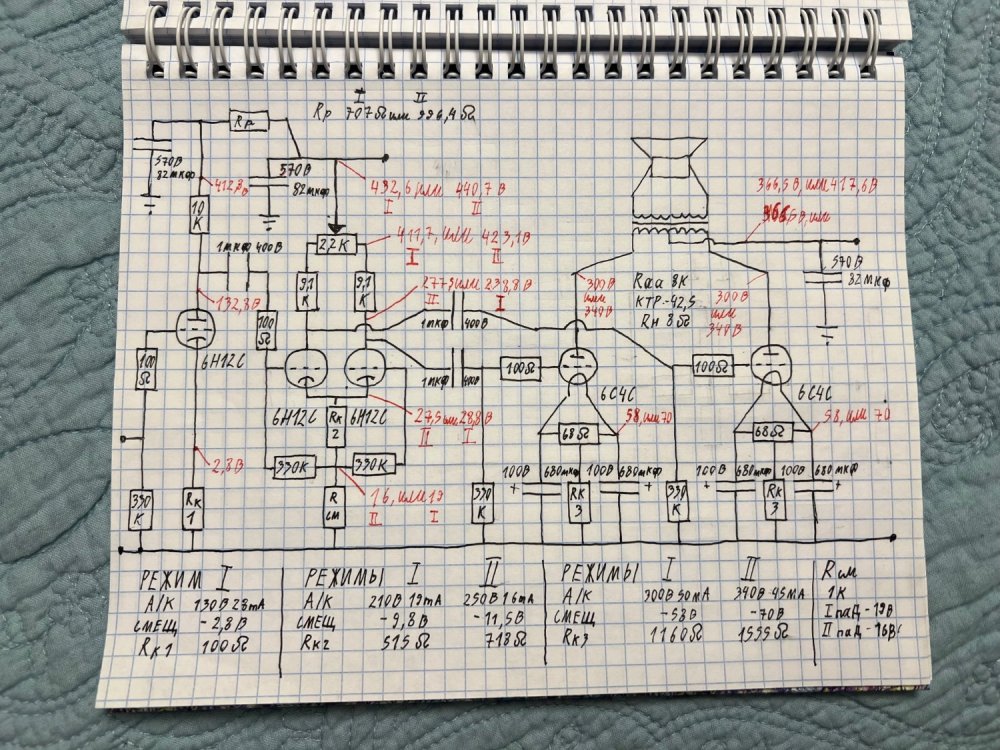 I II
Rр 707Ω или 996,4Ω
Rр
570В
82мкф
570В
82мкф
412,8В
432,6 или 440,7 В
I II
366,5В, или 417,6В
10
К
2,2К
411,7, или 423,1В
I II
1мкф 400В
9,1
К
9,1
К
277,5 или 238,8В
II I
570В
82мкф
300В
или
340В
Rаа 8К
КТР-42,5
Rн 8Ω
300В
или
340В
132,8В
1мкф 400В
100
Ω
6Н12С
100
Ω
1мкф 400В
100Ω
6С4С
100Ω
6С4С
6Н12С
Rк
2
6Н12С
27,5 или 28,8В
II I
58, или 70
68Ω
58, или 70
68Ω
2,8В
330К
330К
100В
680мкф
100В
680мкф
100В
680мкф
100В
680мкф
16, или 19
II I
330
К
Rк
1
R
см
330
К
+
Rк
3
+
330
К
+
Rк
3
+
РЕЖИМ I
А/К 130В 28mA
СМЕЩ -2,8В
Rк1 100Ω
РЕЖИМЫ I II
А/К 210В 19mA 250В 16mA
СМЕЩ -9,8В -11,5В
Rк2 515Ω 718Ω
РЕЖИМЫ I II
А/К 300В 50mA 340В 45mA
СМЕЩ -58В -70В
Rк3 1160Ω 1555Ω
Rсм
1К
I пад-19В
II пад-16В